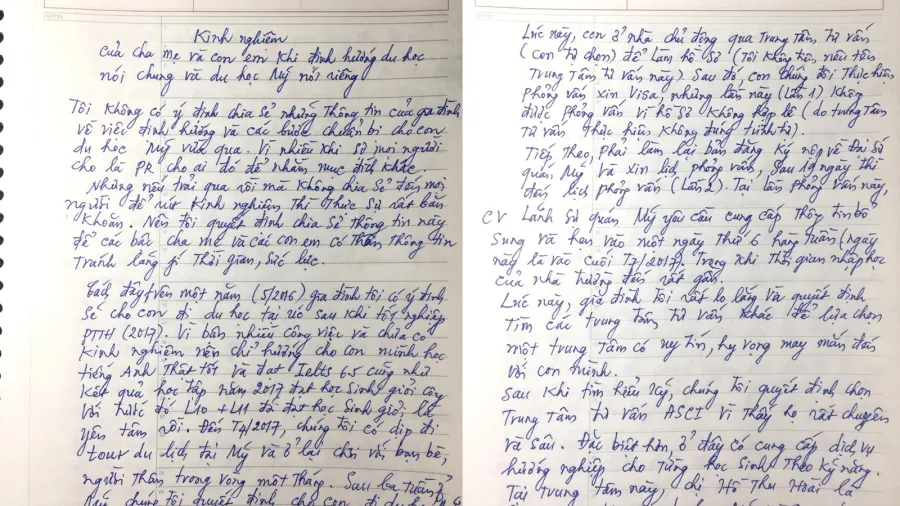 Kinh nghiệm
của cha mẹ và con em khi định hướng du học
nói chung và du học Mỹ nói riêng
Tôi không có ý định chia sẻ những thông tin của gia đình
về việc định hướng và các bước chuẩn bị cho con
du học Mỹ vừa qua. Vì nhiều khi sợ mọi người
cho là PR cho ai đó để nhằm mục đích khác.
Nhưng nếu trải qua rồi mà không chia sẻ đến mọi
người để rút kinh nghiệm thì thực sự rất băn
khoăn. Nên tôi quyết định chia sẻ thông tin này
để các bác cha mẹ và các con em có thêm thông tin
tránh lãng phí thời gian, sức lực.
Cách đây trên một năm (5/2016) gia đình tôi có ý định
sẽ cho con đi du học tại Úc sau khi tốt nghiệp
PTTH (2017). Vì bận nhiều công việc và chưa có
kinh nghiệm nên chỉ hướng cho con mình học
tiếng Anh thật tốt và đạt Ielts 6.5 cũng như
kết quả học tập năm 2017 đạt học sinh giỏi cộng
với trước đó L10 + L11 đã đạt học sinh giỏi là
yên tâm rồi. Đến T4/2017, chúng tôi có dịp đi
tour du lịch tại Mỹ và ở lại chơi với bạn bè,
người thân trong vòng một tháng. Sau ba tuần ở
Mỹ chúng tôi quyết định cho con đi du học
Lúc này, con ở nhà chủ động qua Trung tâm tư vấn
(con tự chọn) để làm hồ sơ (Tôi không tiện nêu tên
Trung tâm tư vấn này). Sau đó, con chúng tôi thực hiện
phỏng vấn xin Visa, nhưng lần này (lần 1) không
được phỏng vấn vì hồ sơ không hợp lệ (do trung tâm
tư vấn thực hiện không đúng trình tự).
Tiếp theo, phải làm lại bản đăng ký nộp về Đại sứ
quán Mỹ và xin lịch phỏng vấn, sau 19 ngày thì
đến lịch phỏng vấn (Lần 2). Tại lần phỏng vấn này,
CV Lãnh sứ quán Mỹ yêu cầu cung cấp thông tin bổ
sung và hẹn vào một ngày thứ 6 hàng tuần (ngày
này là vào cuối T7/2017). Trong khi thời gian nhập học
của nhà trường đến rất gần.
Lúc này, gia đình tôi rất lo lắng và quyết định
tìm các trung tâm tư vấn khác để lựa chọn
một trung tâm có uy tín, hy vọng may mắn đến
với con mình.
Sau khi tìm hiểu kỹ, chúng tôi quyết định chọn
Trung tâm tư vấn ASCI vì thấy họ rất chuyên
và sâu. Đặc biệt hơn, ở đây có cung cấp dịch vụ
hướng nghiệp cho từng học sinh theo kỹ năng.
Tại trung tâm này, chị Hồ Thu Hoài là